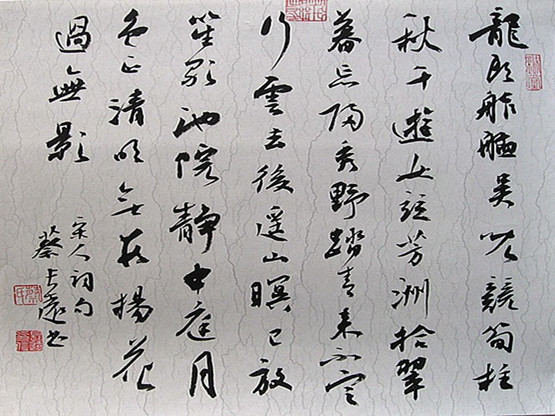 龍頭舴艋吳兒競筍柱
秋千遊女並芳洲拾翠
暮忘歸秀野踏青來不定
行雲去後遙山暝已放
笙歌池院靜中庭月
色正清明無數揚花
過無影
宋人詞句
蔡書